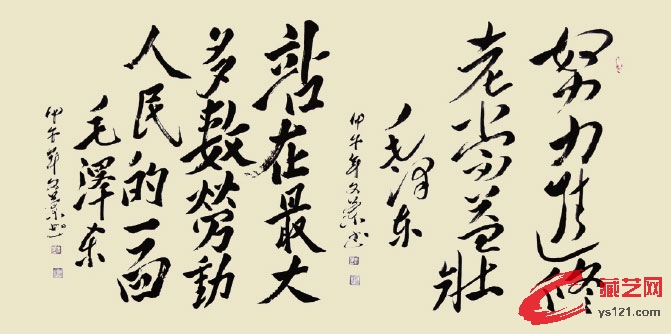 努力進修
老當益壯
毛泽东
甲午年
站在最大
多數勞動
人民的一面
毛澤東
甲午年
藏艺网
ys121.com